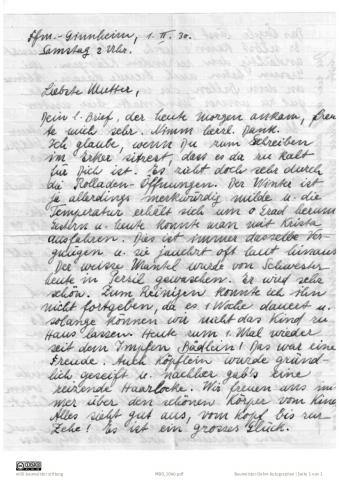 Ffm.-Ginnheim, 1. II. 30.
Samstag 2 Uhr.
Liebste Mutter,
Dein l. Brief, der heute Morgen ankam, freu-
te mich sehr. Nimm herzl. Dank.
Ich glaube, wenn Du zum Schreiben
im Erker sitzest, dass es da zu kalt
für Dich ist. Es zieht doch sehr durch
die Rolladen-Öffnungen. Der Winter ist
ja allerdings merkwürdig milde u. die
Temperatur erhält sich um 0 Grad herum
Gestern u. heute konnte man mit Krista
ausfahren. Das ist immer dasselbe Ver-
gnügen u. sie jauchzt oft laut hinaus.
Der weisse Mantel wurde von Schwester
heute in Persil gewaschen. Er wird sehr
schön. Zum Reinigen konnte ich ihn
nicht fortgeben, da es 1 Woche dauert u.
solange können wir nicht das Kind zu
Haus lassen. Heute zum 1. Mal wieder
seit dem Impfen Bädlein! Das war eine
Freude. Auch Köpflein wurde gründ-
lich geseift u. nachher gab's eine
reizende Haarlocke. Wir freuen uns im-
mer über den schönen Körper vom Kind
Alles sieht gut aus, vom Kopf bis zur
Zehe! Es ist ein grosses Glück.
willi baumeister stiftung
Baumeister-Online Autographen | Seite 1 von 1